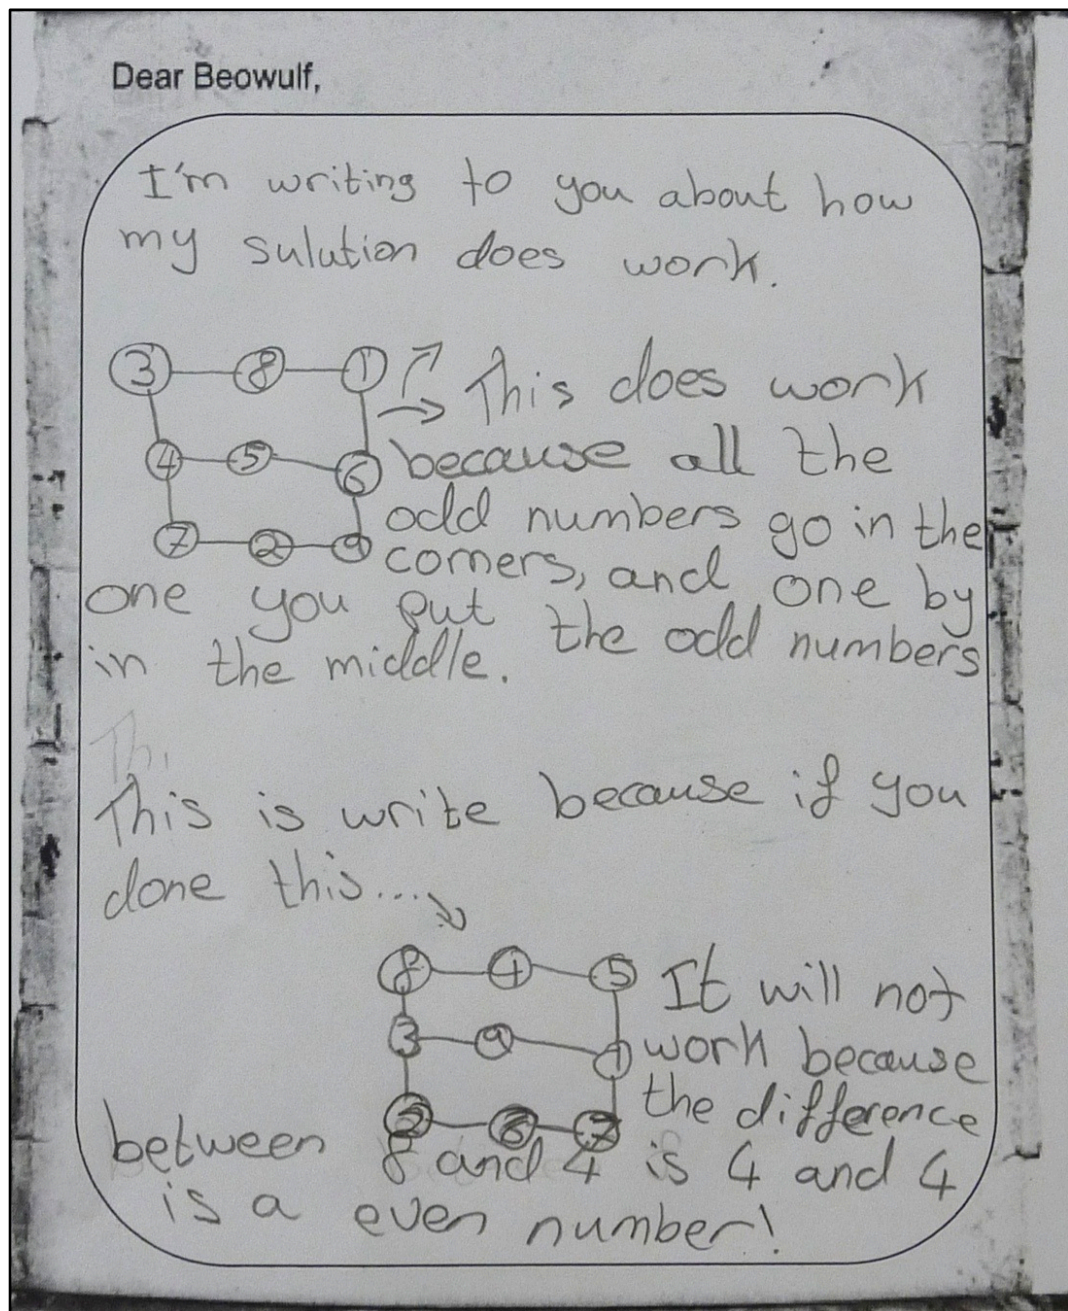 Dear Beowulf,
I'm writing to you about how
my sulution does work.
3 8 1 This does work
4 5 6 because all the
odd numbers go in the
7 2 9 corners, and one by
one you put the odd numbers
in the middle.
Thi
This is write because if you
done this...
8 4 5 It will not
3 9 1 work because
the difference
2 6 7
between 8 and 4 is 4 and 4
is a even number!